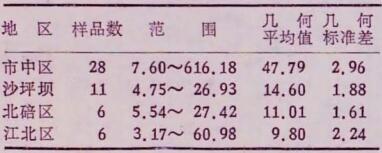 地 区 样品数 范 围 几何平均值 几何标准差
市中区 28 7.60～616.18 47.79 2.96
沙坪坝 11 4.75～ 26.93 14.60 1.88
北碚区 6 5.54～ 27.42 11.01 1.61
江北区 6 3.17～ 60.98 9.80 2.24